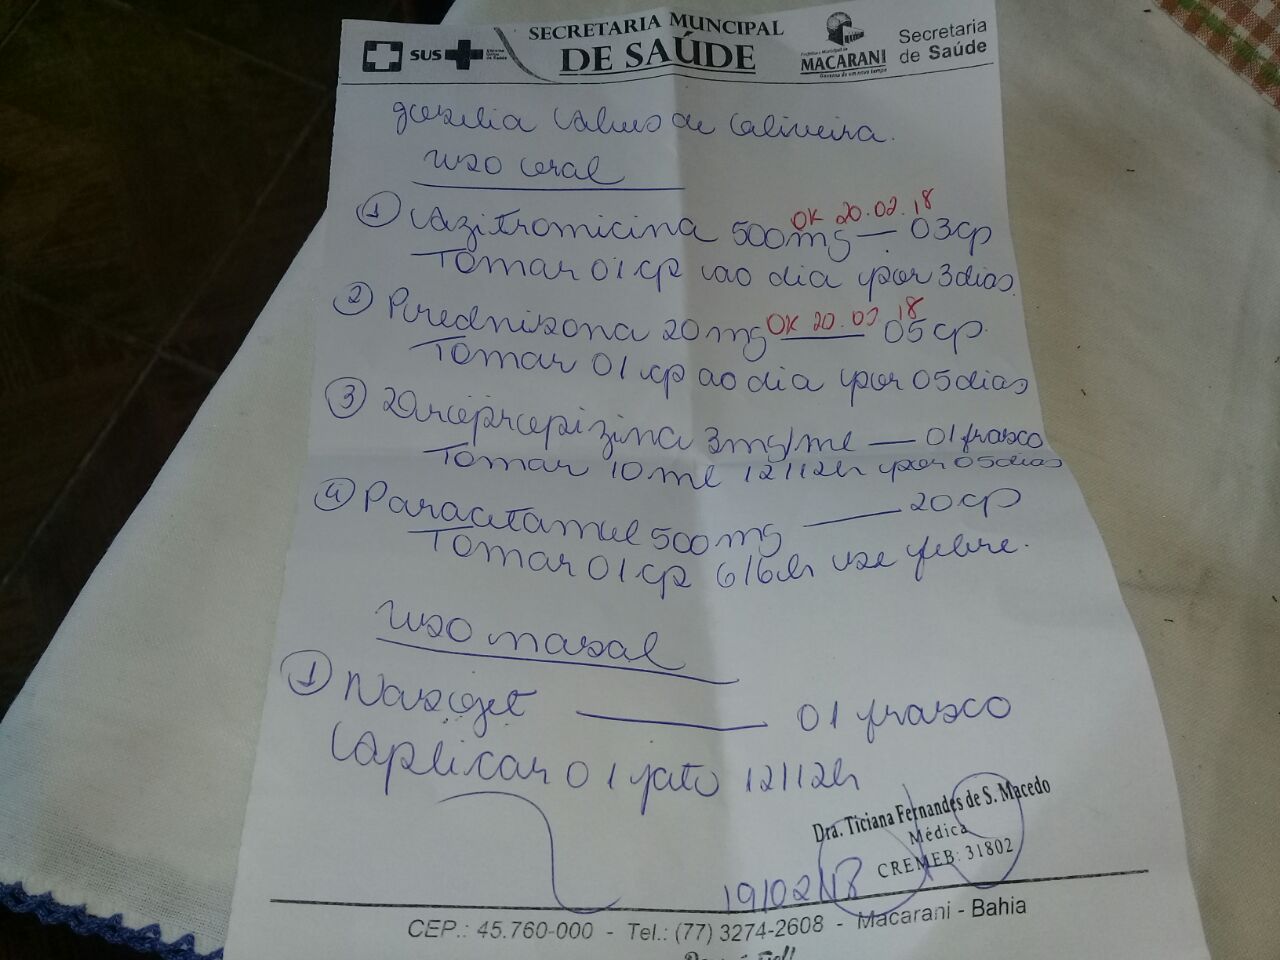 SUS
SECRETARIA MUNCIPAL
DE SAÚDE
MACARANI
Secretaria
de Saúde
Alves de Oliveira.
uso oral
1 Azitromicina 500mg — 03cp
OK 20.02.18
Tomar 01 cp ao dia por 3dias.
2 Prednisona 20mg — 05cp.
OK 20.02 18
Tomar 01 cp ao dia por 05dias
3 Dropropizina 3mg/ml — 01 frasco
Tomar 10ml 12/12h por 05dias
4 Paracetamol 500mg — 20cp
Tomar 01 cp 6/6h se febre.
uso nasal
1 Nasojet — 01 frasco
Aplicar 01 jato 12/12h
Dra. Ticiana Fernandes de S. Macedo
Médica
CREMEB: 31802
19/02/18
CEP.: 45.760-000 - Tel.: (77) 3274-2608 - Macarani - Bahia